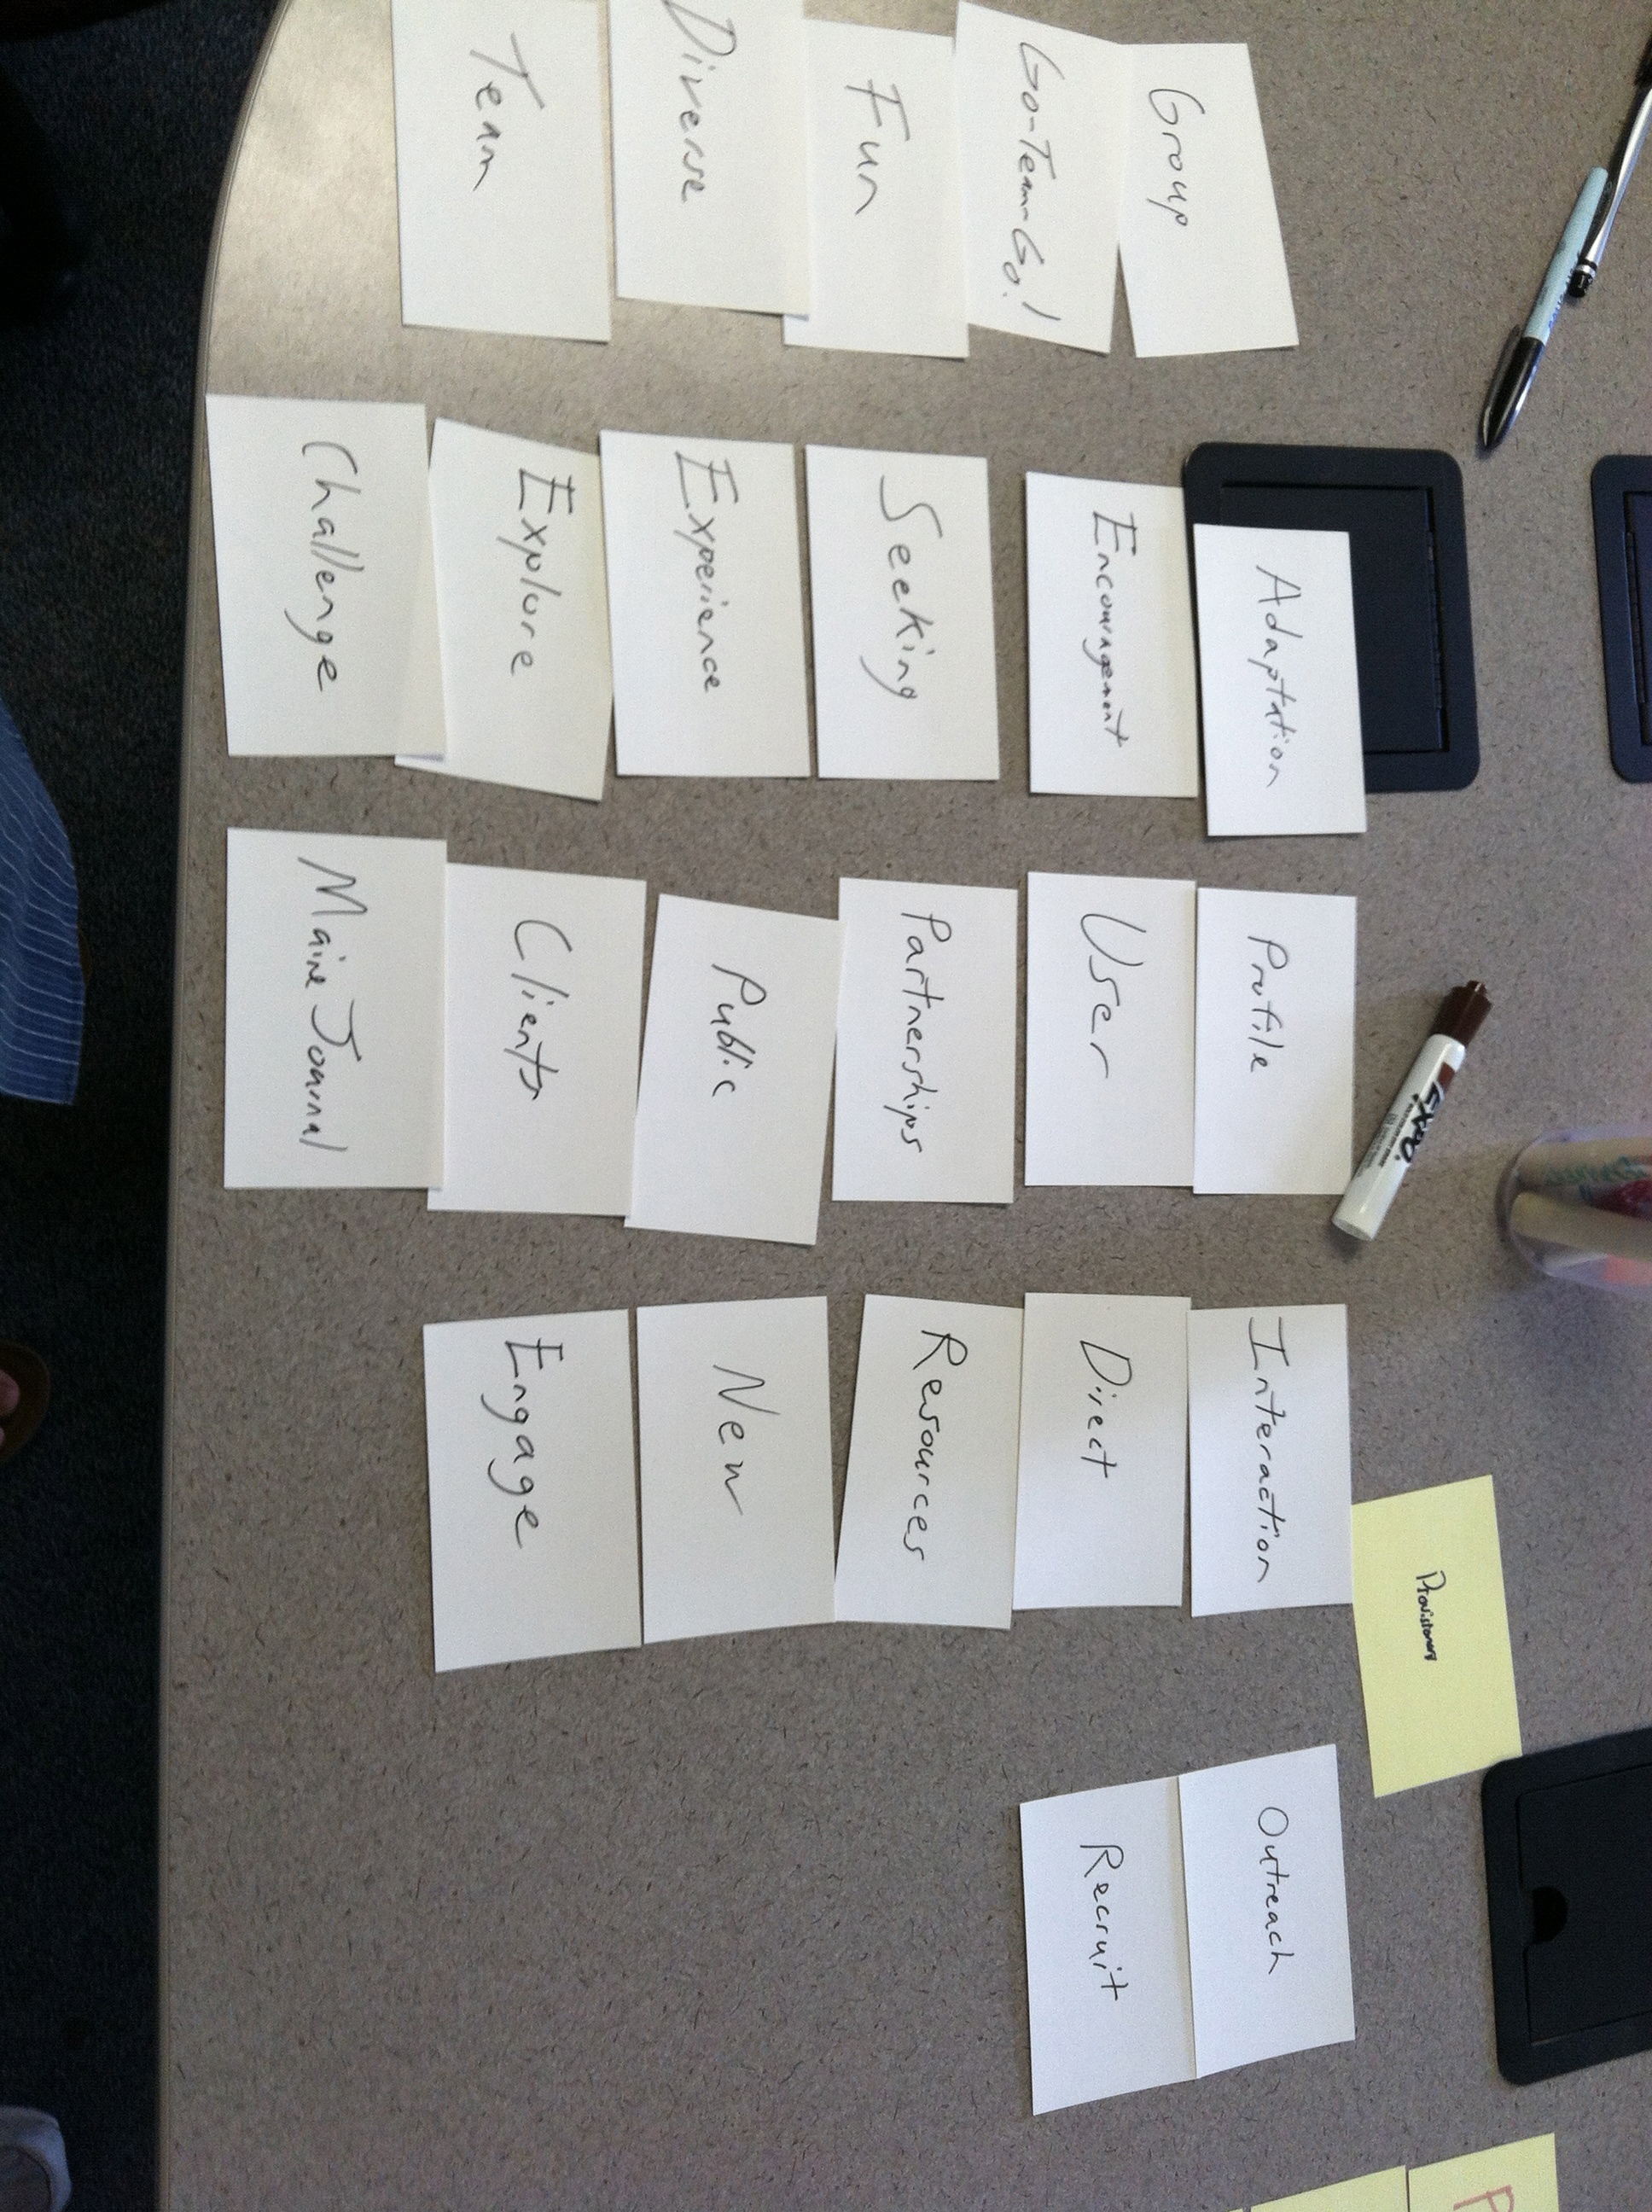 Group
Go-Team-Go!
Fun
Diverse
Team
Adaptation
Encouragement
Seeking
Experience
Explore
Challenge
Profile
User
Partnerships
Public
Clients
Maine Journal
Interaction
Direct
Resources
New
Engage
Outreach
Recruit
EXPO